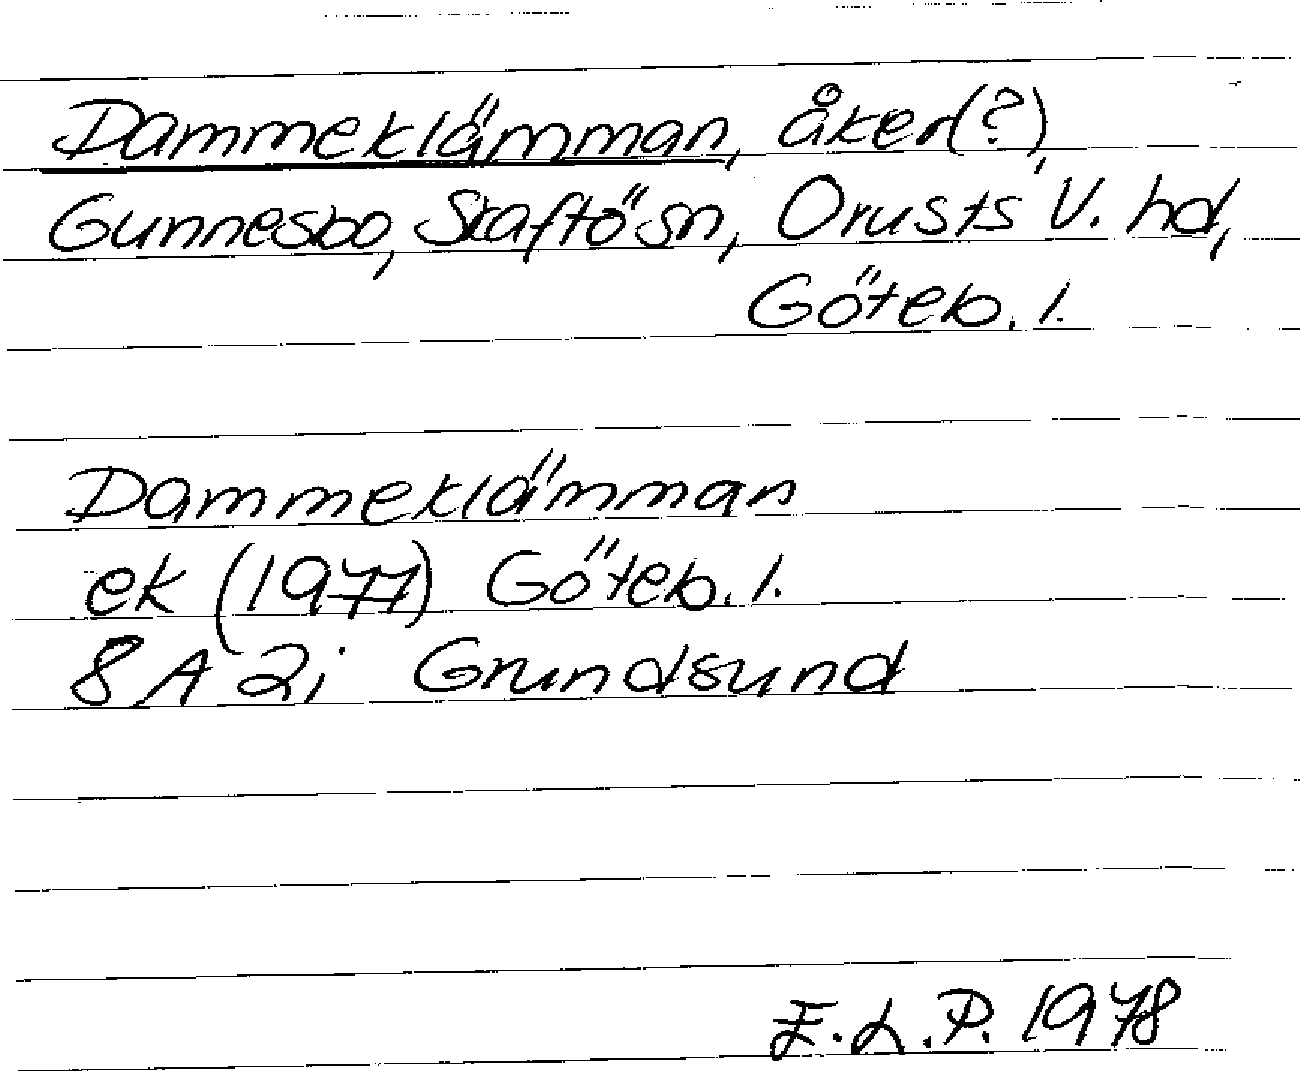 Dammeklämman, åker(?),
Gunnesbo, Skaftö sn, Orusts V. hd,
Göteb. l.
Dammeklämman
ek (1977) Göteb. l.
8 A 2i Grundsund
E.L.P. 1978